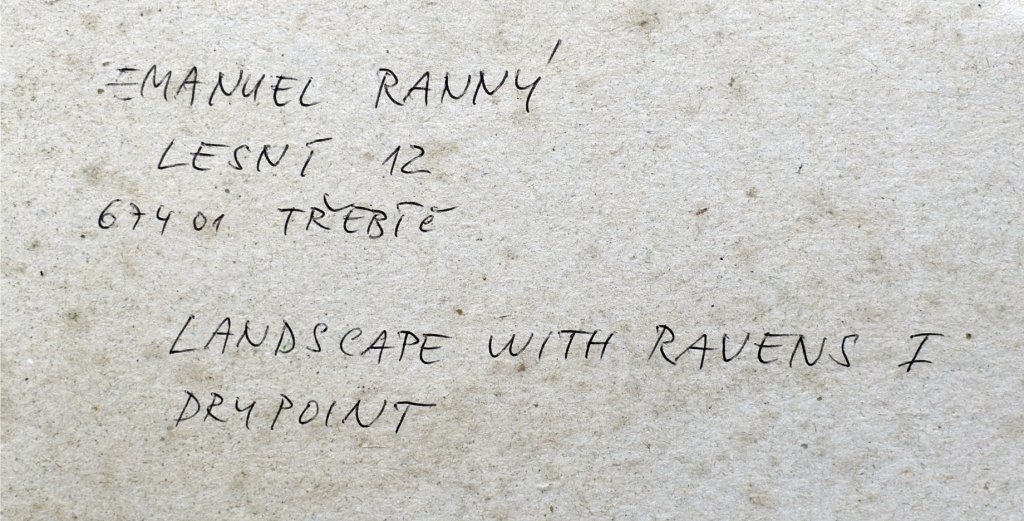 EMANUEL RANNÝ
LESNÍ 12
67401 TŘEBÍČ
LANDSCAPE WITH RAVENS I
DRYPOINT